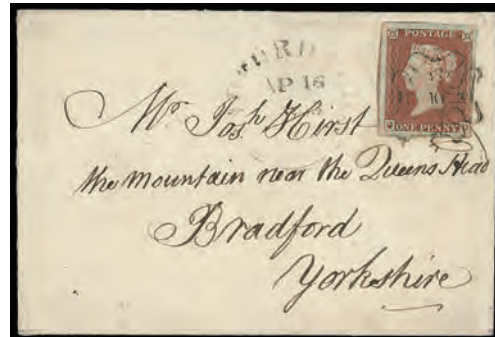 POSTAGE
AP 16
ONE PENNY
Mr. Josh Hirst
the mountain near the Queens Head
Bradford
Yorkshire